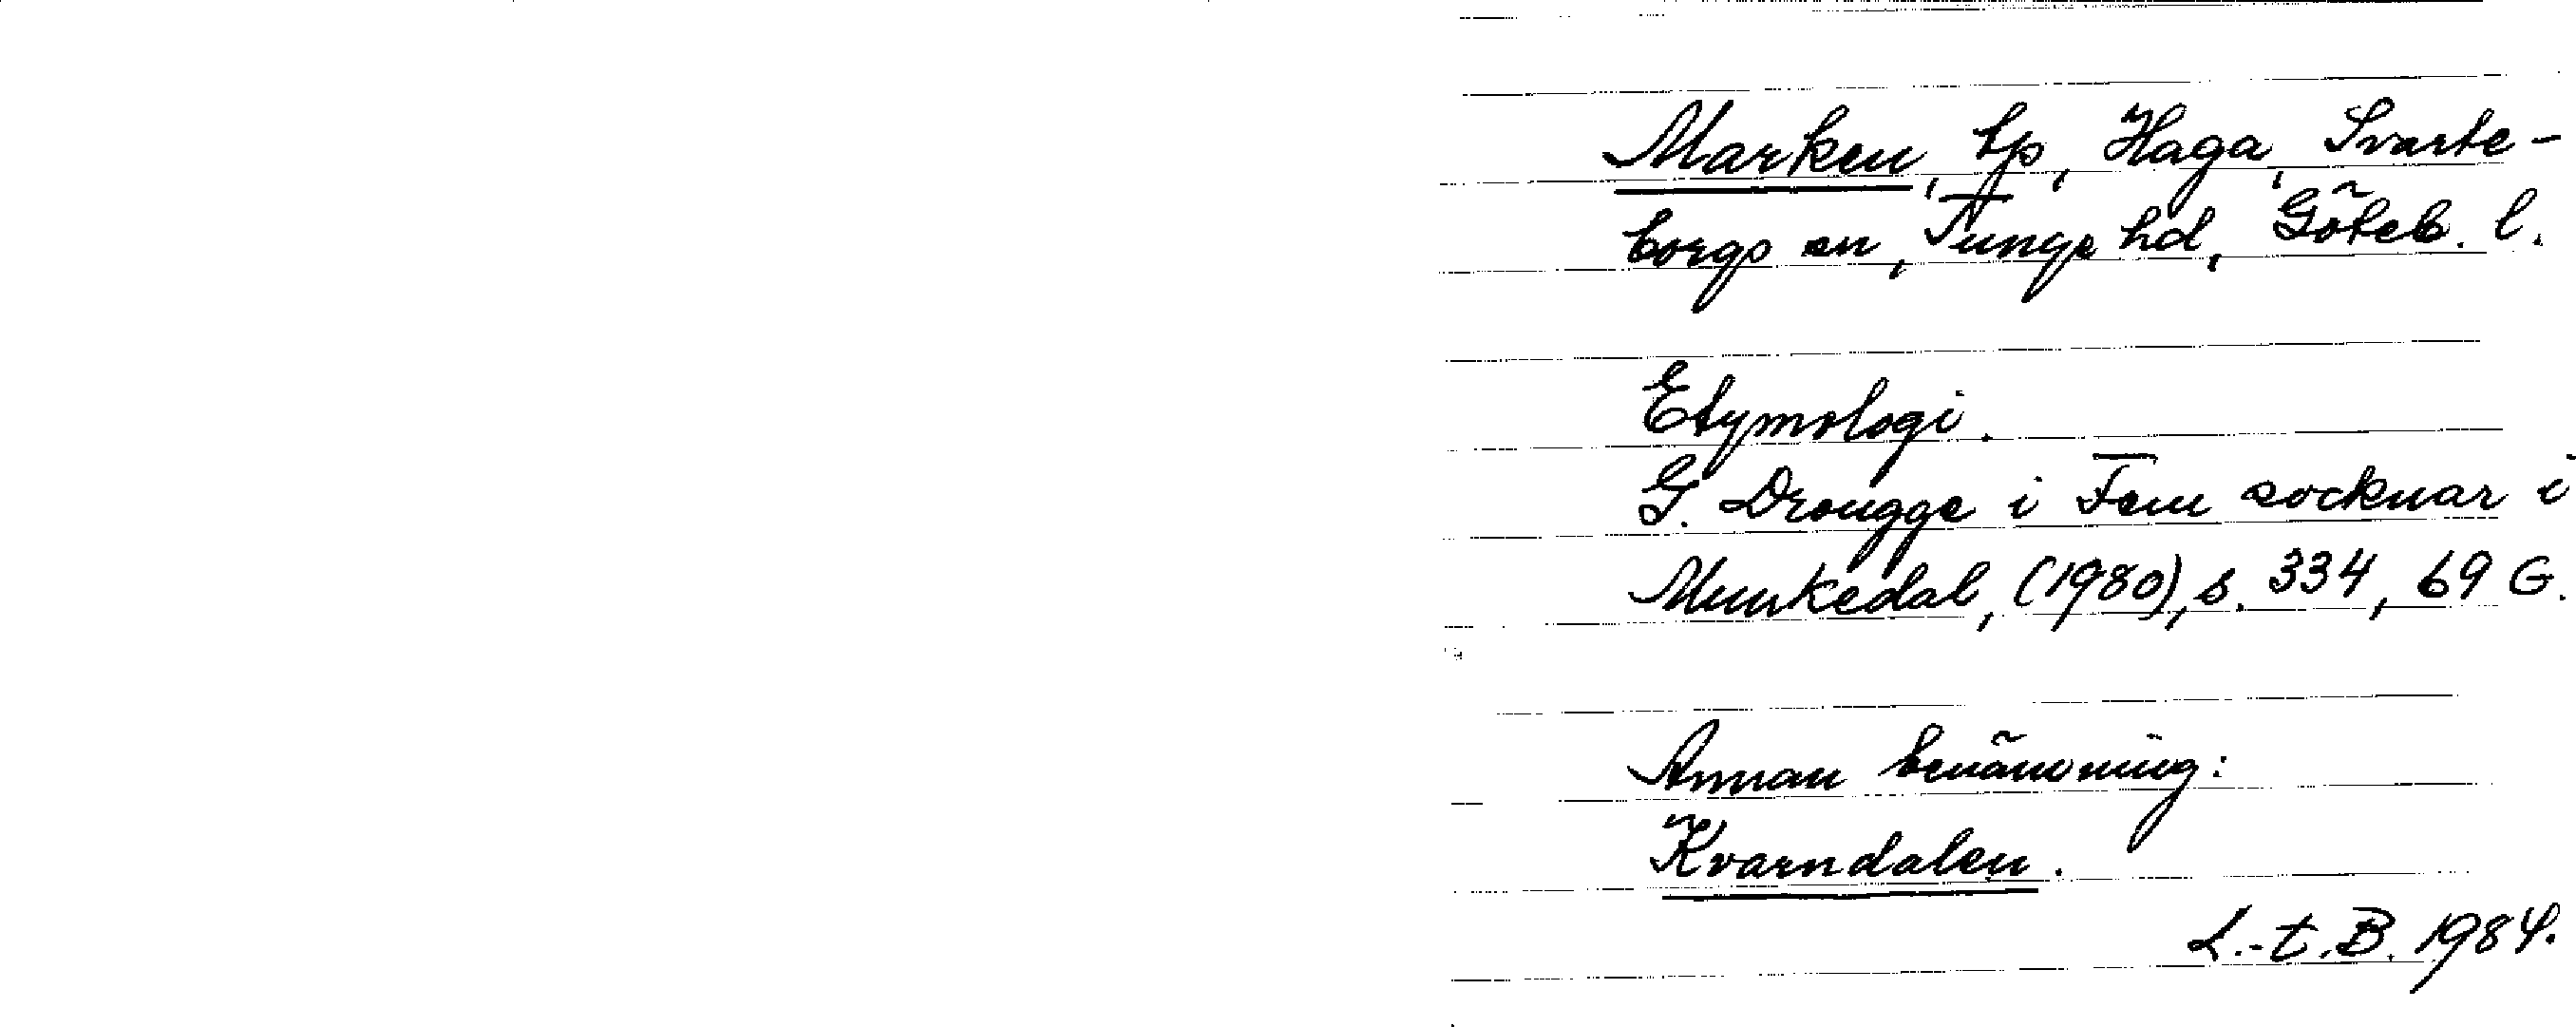 Marken, tp, Haga, Svarte-
borgs sn, Tunge hd, Göteb. l.
Etymologi.
G. Drougge i Fem socknar i
Munkedal, (1980), s. 334, 69 G.
Annan benämning:
Kvarndalen.
L.-t. B. 1984.